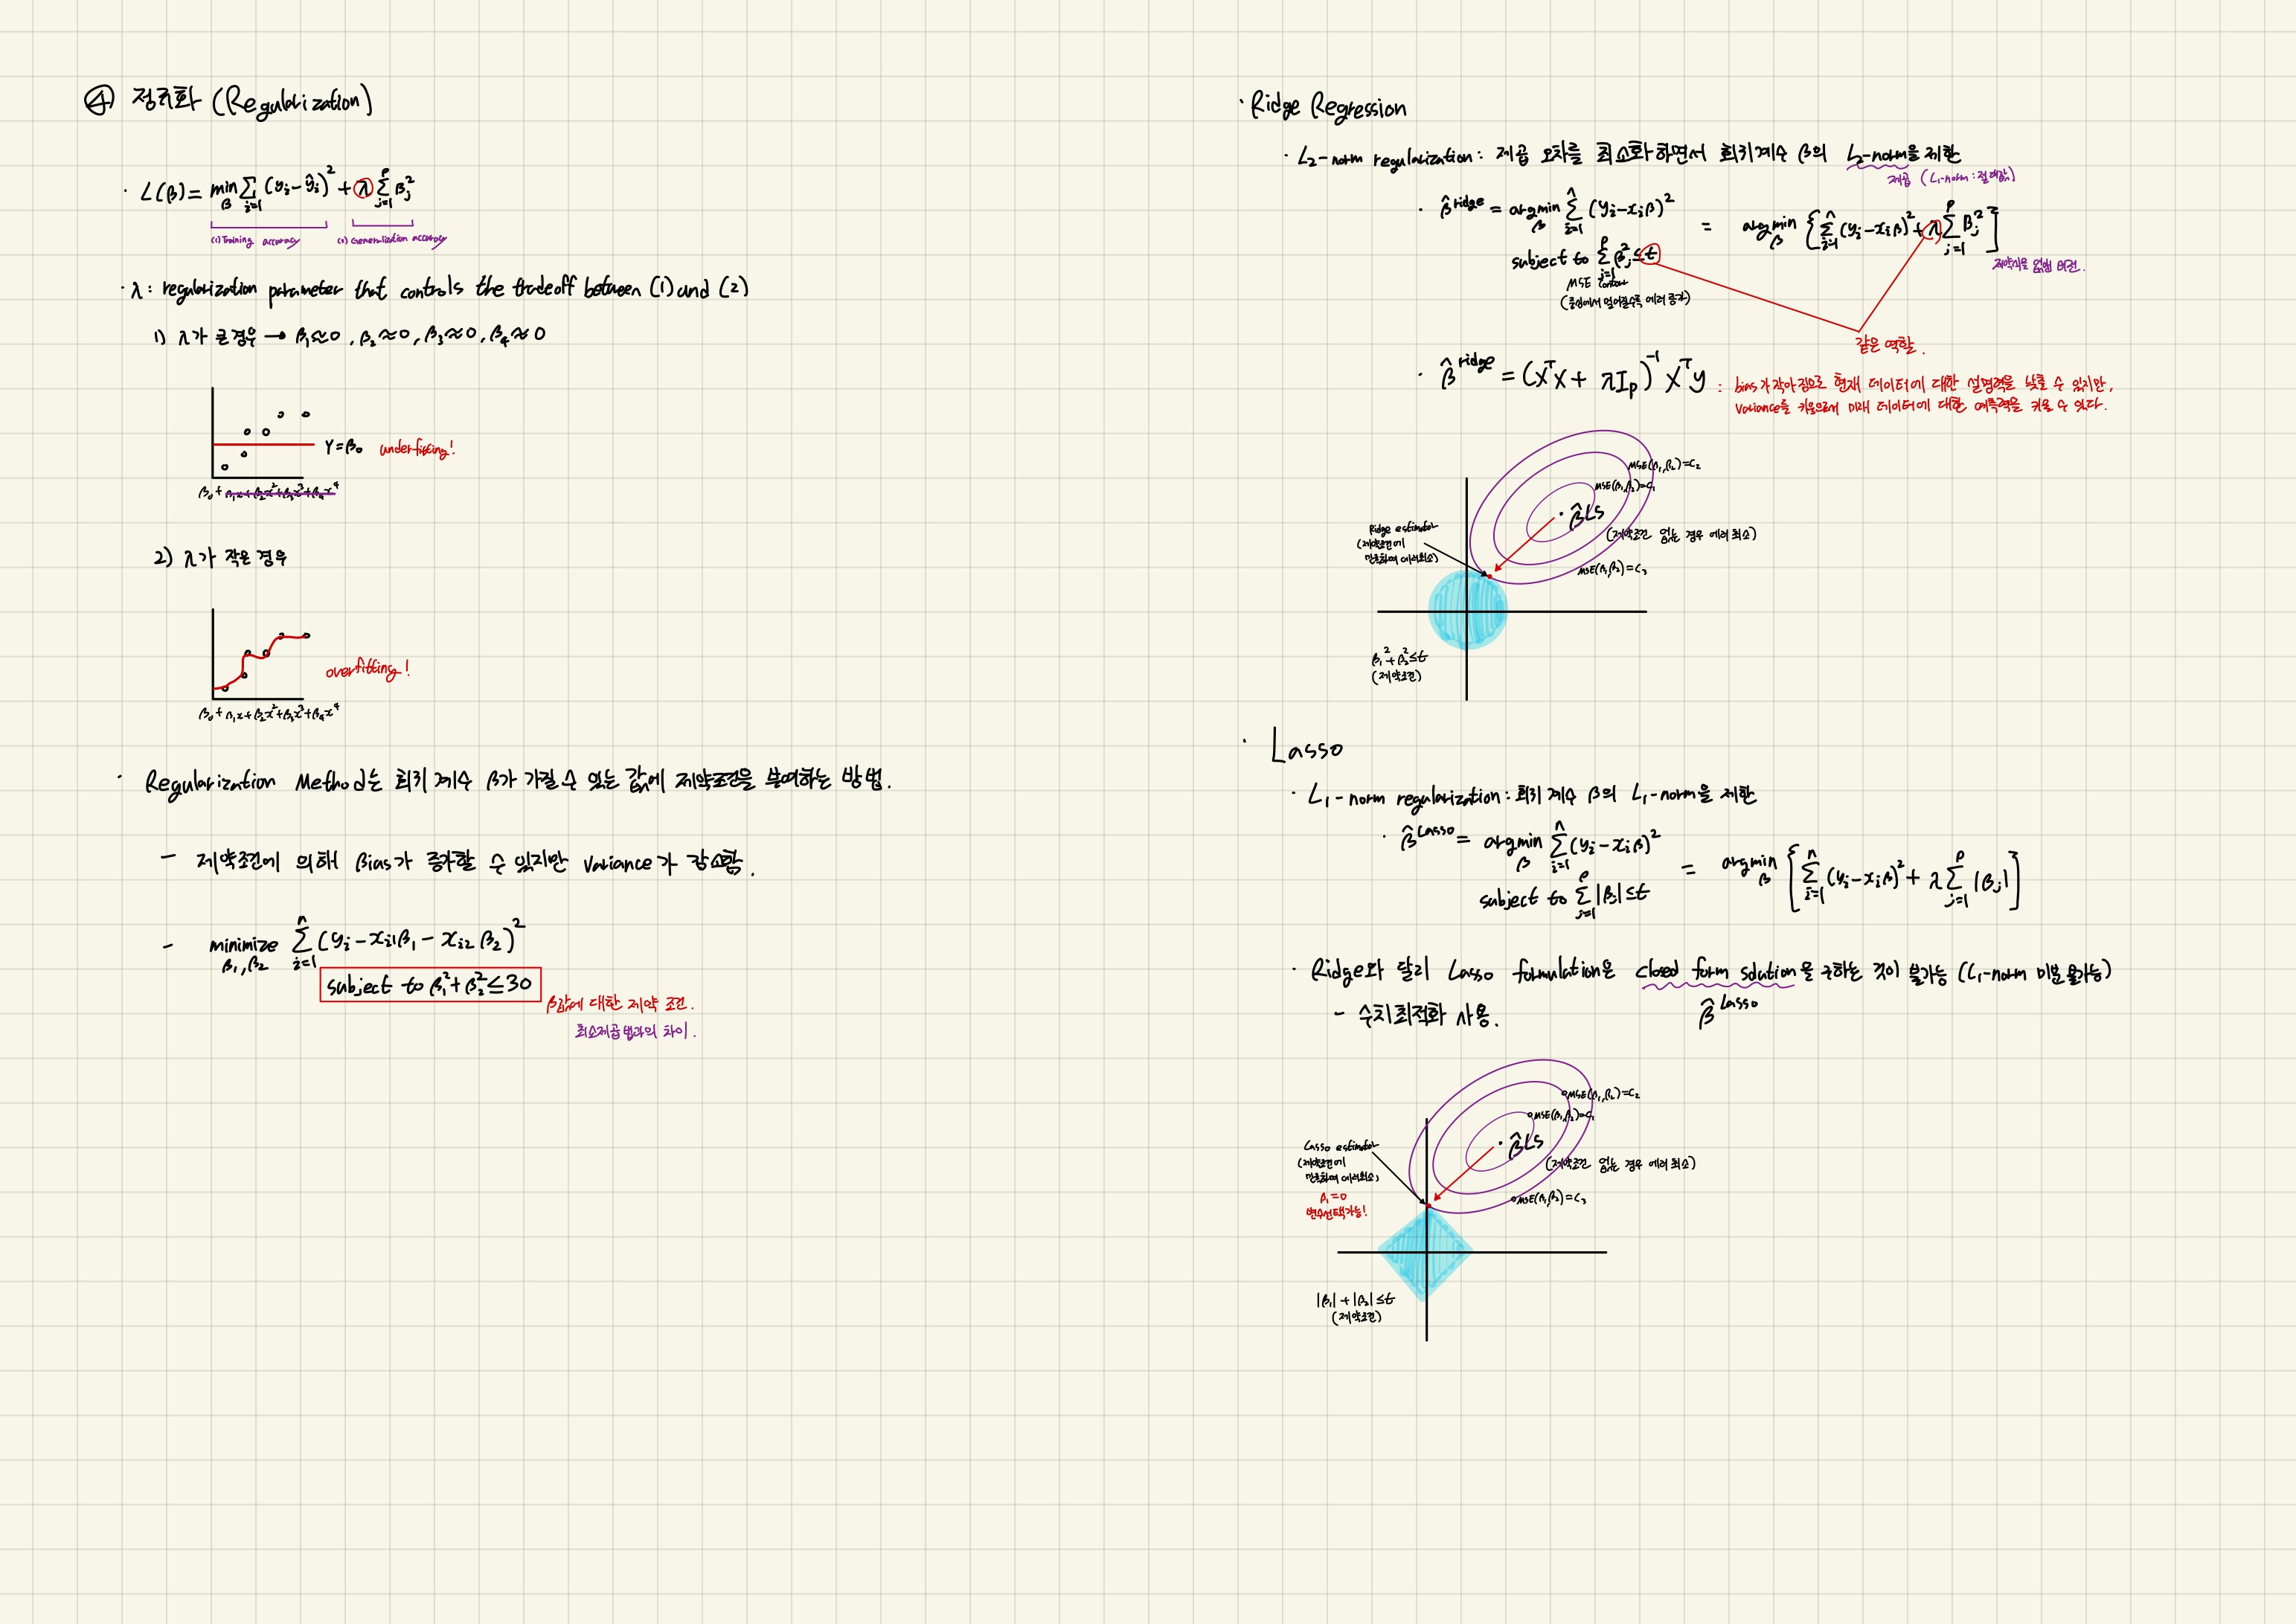 ④ 정규화 (Regularization)
· L(β) = min_β Σ_{i=1} (y_i - ŷ_i)² + λ Σ_{j=1}^{p} β_j²
(1) Training accuracy (2) Generalization accuracy
· λ: regularization parameter that controls the tradeoff between (1) and (2)
1) λ가 큰 경우 → β₁≈0, β₂≈0, β₃≈0, β₄≈0
Y=β₀ underfitting!
β₀+β₁x+β₂x²+β₃x³+β₄x⁴
2) λ가 작은 경우
overfitting!
β₀+β₁x+β₂x²+β₃x³+β₄x⁴
· Regularization Method는 회귀 계수 β가 가질 수 있는 값에 제약조건을 부여하는 방법.
- 제약조건에 의해 Bias가 증가할 수 있지만 Variance가 감소함.
- minimize_{β₁,β₂} Σ_{i=1}^{n} (y_i - x_{i1}β₁ - x_{i2}β₂)²
subject to β₁²+β₂² ≤ 30
β값에 대한 제약 조건.
최소제곱법과의 차이.
· Ridge Regression
· L₂-norm regularization: 제곱 오차를 최소화하면서 회귀계수 β의 L₂-norm을 제한
제곱 (L₁-norm: 절대값)
· β̂^ridge = argmin_β Σ_{i=1}^{n} (y_i - x_iβ)² = argmin_β {Σ_{i=1}^{n} (y_i - x_iβ)² + λ Σ_{j=1}^{p} β_j²]
subject to Σ_{j=1}^{p} β_j² ≤ t
제약식을 없앤 버전.
MSE Contour
(중심에서 멀어질수록 에러 증가)
같은 역할.
· β̂^ridge = (XᵀX + λI_p)⁻¹Xᵀy : bias가 작아짐으로 현재 데이터에 대한 설명력을 낮출 수 있지만,
Variance를 키움으로서 미래 데이터에 대한 예측력을 키울 수 있다.
MSE(β₁,β₂)=C₂
MSE(β₁,β₂)=C₁
β̂LS
(제약조건 없는 경우 에러 최소)
Ridge estimator
(제약조건에
만족하며 에러최소)
MSE(β₁,β₂)=C₃
β₁²+β₂²≤t
(제약조건)
· Lasso
· L₁-norm regularization: 회귀 계수 β의 L₁-norm을 제한
· β̂^Lasso = argmin_β Σ_{i=1}^{n} (y_i - x_iβ)² = argmin_β {Σ_{i=1}^{n} (y_i - x_iβ)² + λ Σ_{j=1}^{p} |β_j|]
subject to Σ_{j=1}^{p} |β_j| ≤ t
· Ridge와 달리 Lasso formulation은 closed form solution을 구하는 것이 불가능 (L₁-norm 미분 불가능)
β̂^Lasso
- 수치최적화 사용.
MSE(β₁,β₂)=C₂
MSE(β₁,β₂)=C₁
β̂LS
(제약조건 없는 경우 에러 최소)
Lasso estimator
(제약조건에
만족하며 에러최소)
β₁=0
변수선택가능!
MSE(β₁,β₂)=C₃
|β₁|+|β₂|≤t
(제약조건)